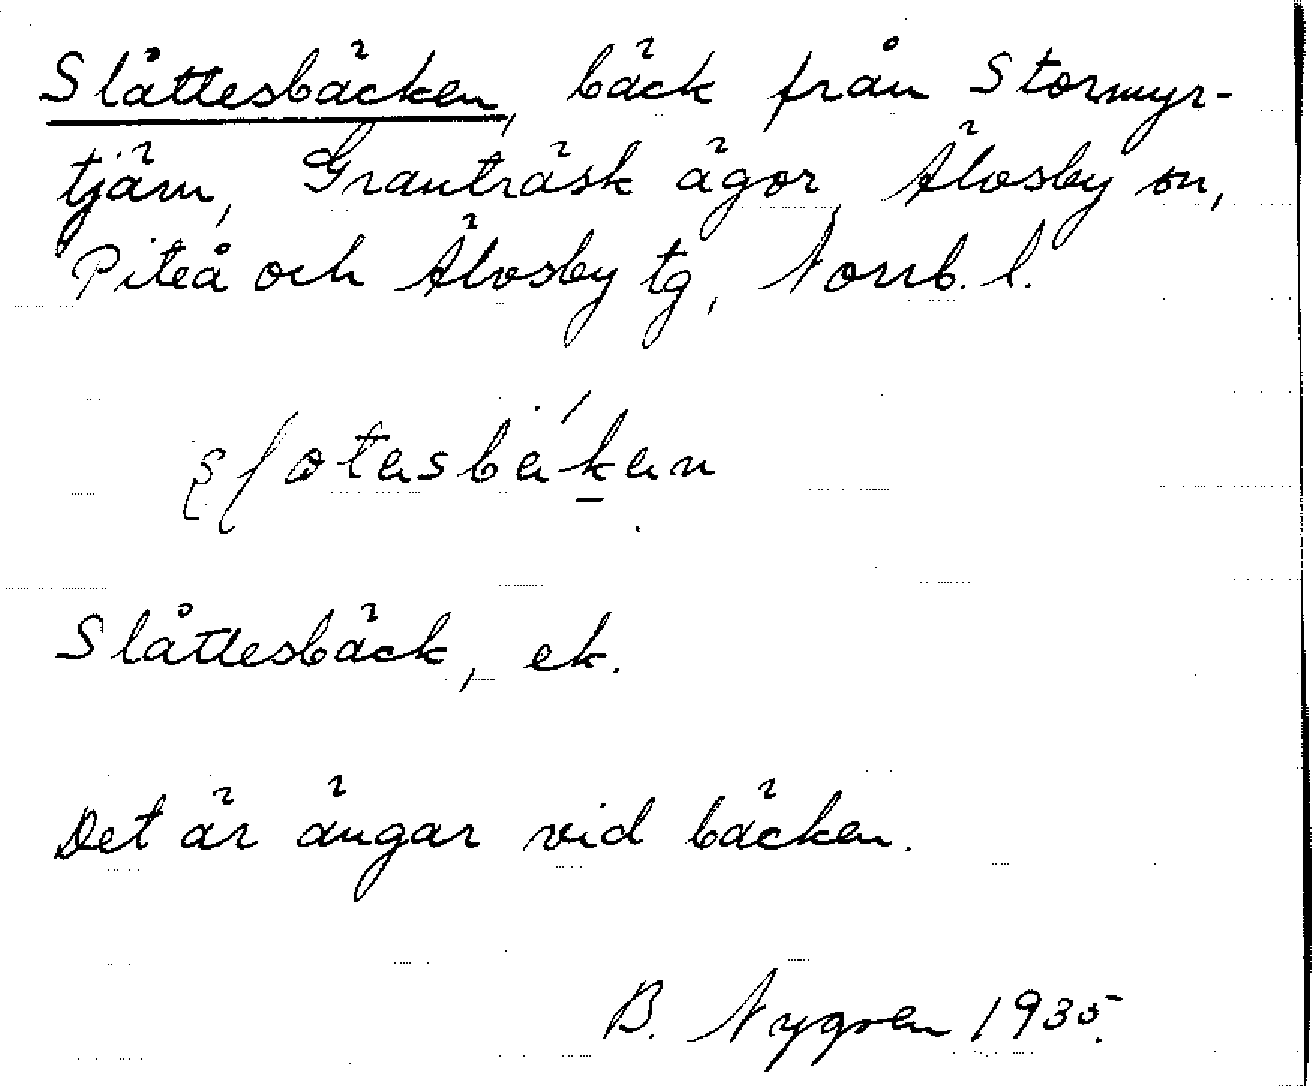 Slåttesbäcken, bäck från Stormyr-
tjärn, Granträsk ägor, Älvsby sn,
Piteå och Älvsby tg, Norrb. l.
Slåttesbäck, ek.
Det är ängar vid bäcken.
B. Nygren 1935.